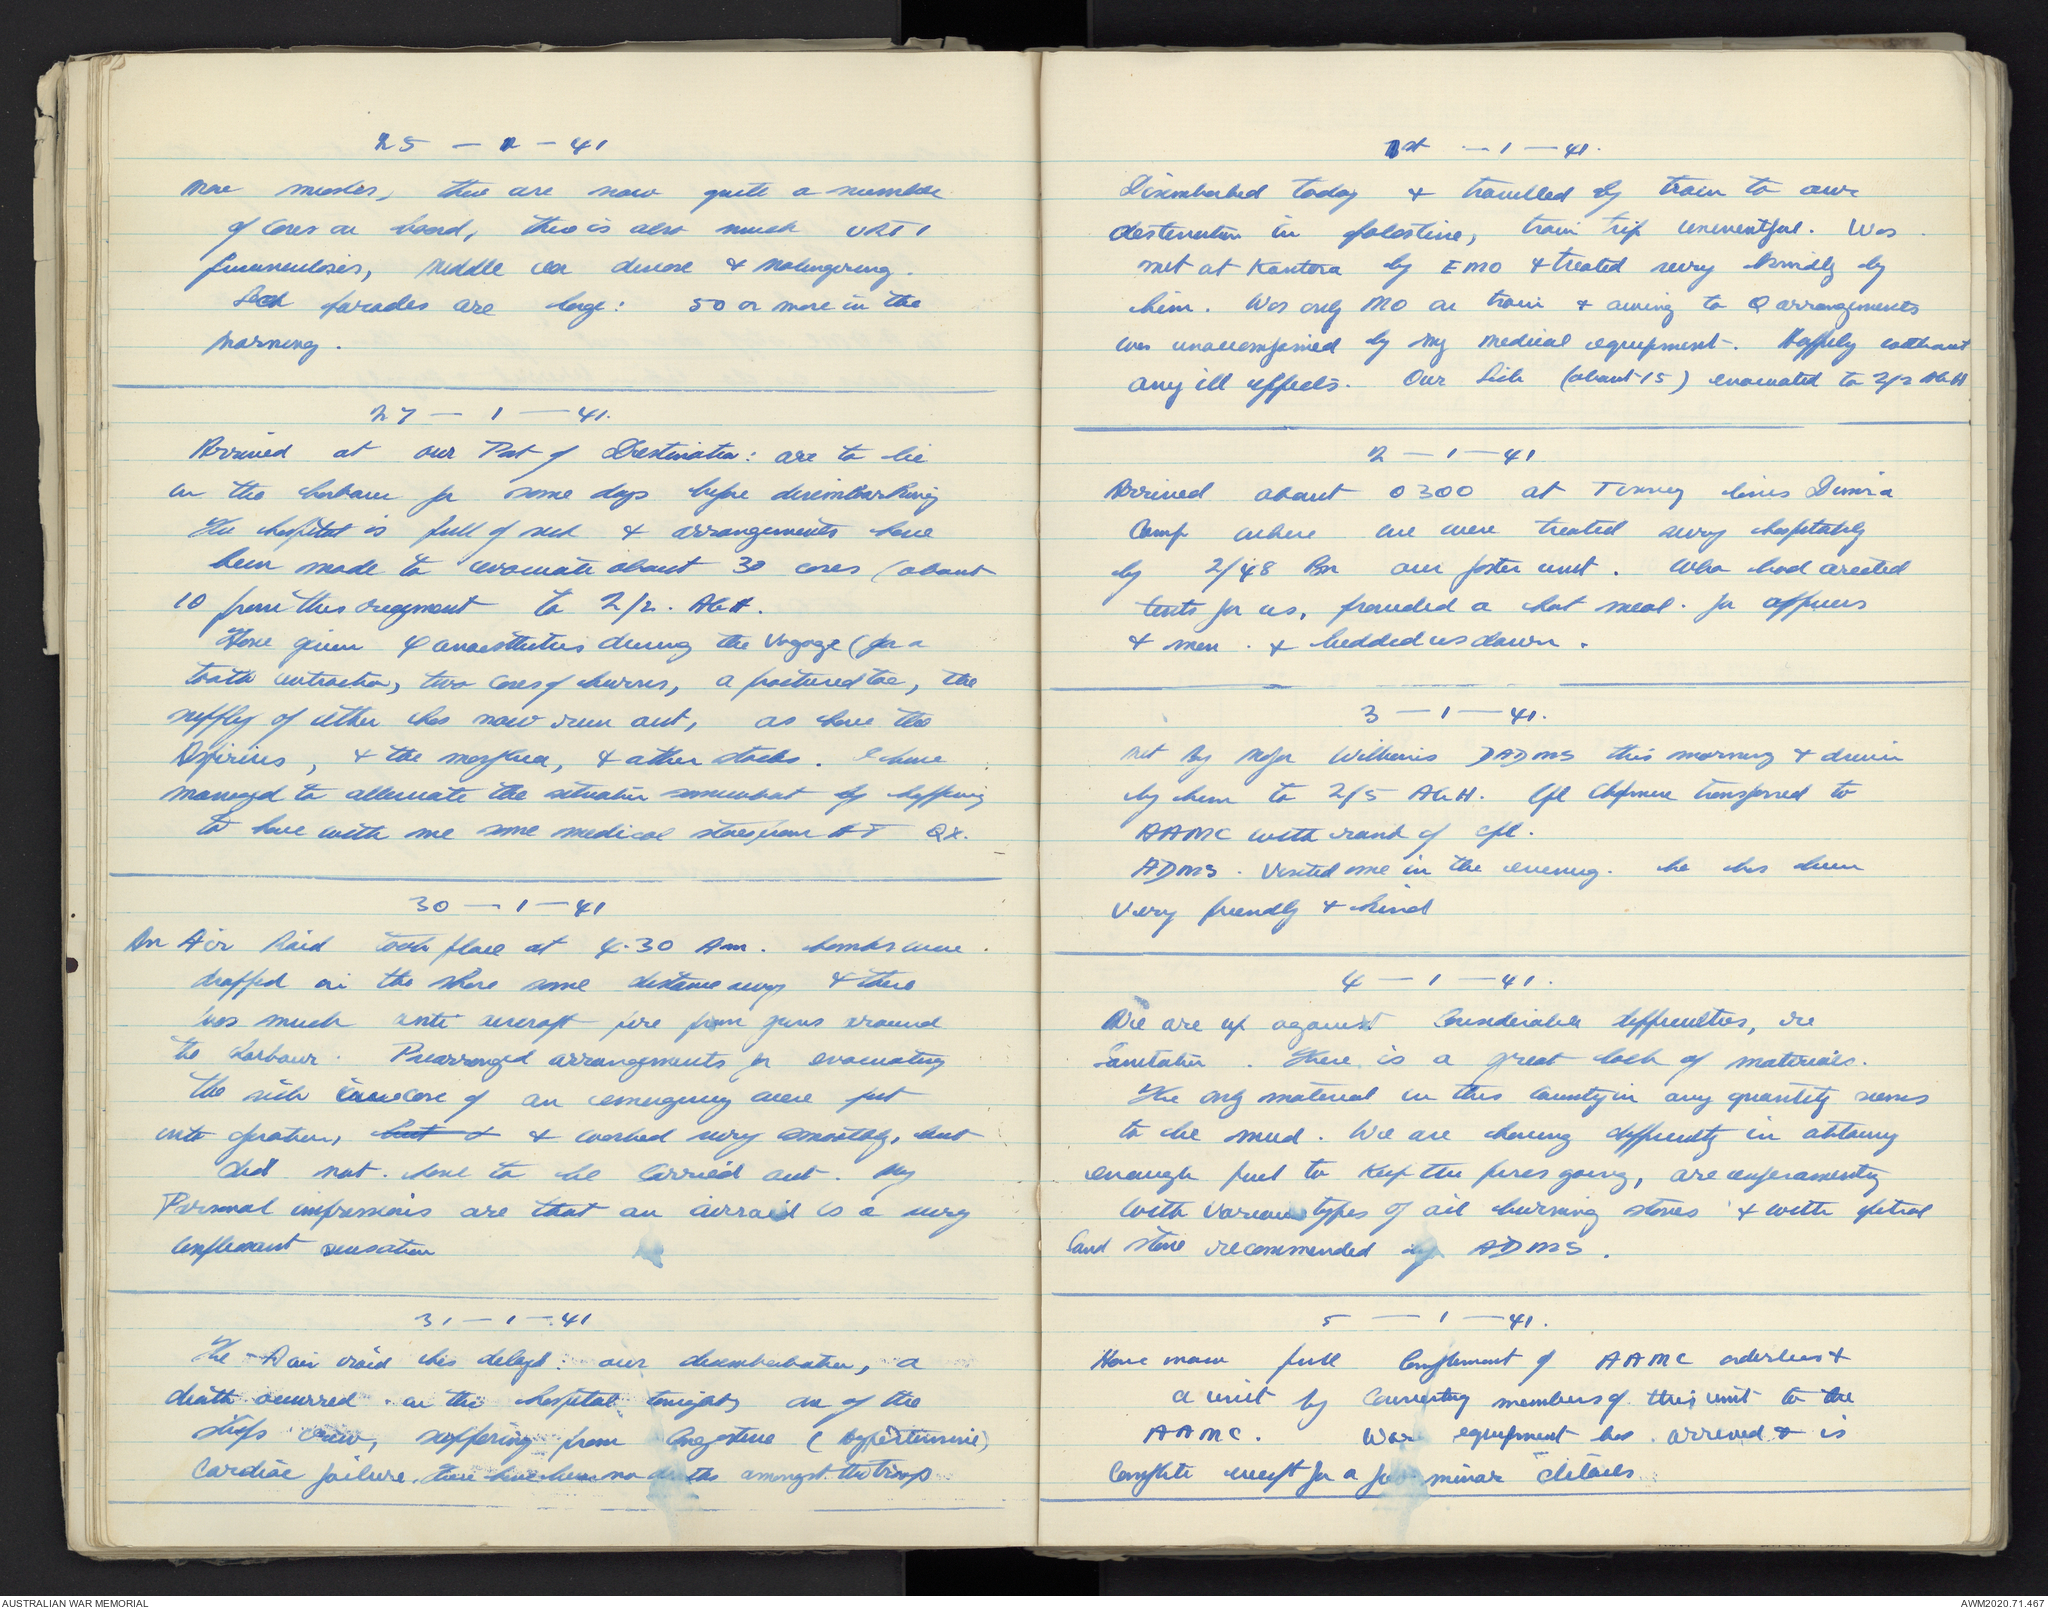 25 - 1 - 41
More measles, there are now quite a number
of cases on board, there is also much URTI
furunculosis, middle ear disease & malingering.
Sick parades are large: 50 or more in the
morning.
27 - 1 - 41.
Arrived at our Port of Destination: are to lie
in the harbour for some days before disembarking
The hospital is full of sick & arrangements have
been made to evacuate about 30 cases (about
10 from this regiment to 2/2. AGH.
Have given 4 anaesthetics during the voyage (for a
tooth extraction, two cases of burns, a fractured toe, the
supply of ether has now run out, as have the
Aspirins, & the morphia, & other stocks. I have
managed to alleviate the situation somewhat by happening
to have with me some medical stores from HT QX.
30 - 1 - 41
An Air Raid took place at 4.30 Am. bombs were.
dropped on the shore some distance away & there
was much anti aircraft fire from guns around
the harbour. Prearranged arrangements for evacuating
the sick in case of an emergency were put
into operation, but & & worked very smoothly, but
did not. have to be carried out. My
Personal impressions are that an airraid is a very
unpleasant sensation
31 - 1 - 41
The A air raid has delayed our disembarkation, a
death occurred in the hospital tonight, one of the
ships crew, suffering from Congestive (Hypertensive)
Cardiac failure. There have been no deaths amongst the troops
1st - 1 - 41.
Disembarked today & travelled by train to our
destination in Palestine, train trip uneventful. Was
met at Kantara by EMO & treated very kindly by
him. Was only MO on train & owing to Q arrangements
was unaccompanied by my medical equipment. Happily without
any ill effects. Our Sick (about 15) evacuated to 2/2 AGH
2 - 1 - 41
Arrived about 0300 at Tenney lines Dimra
Camp where we were treated very hospitably
by 2/48 Bn our foster unit. Who had erected
tents for us, provided a hot meal. for officers
& men. & bedded us down.
3 - 1 - 41.
Met by Major Williams DADMS this morning & driven
by him to 2/5 AGH. Cpl Chapman transferred to
AAMC with rank of Cpl.
ADMS. Visited me in the evening. he has been
very friendly & kind
4 - 1 - 41.
We are up against Considerable difficulties, re
Sanitation. There is a great lack of materials.
The only material in this Country in any quantity seems
to be mud. We are having difficulty in obtaining
enough fuel to keep the fires going, are experimenting
with various types of oil burning stoves & with petrol
Sand stove recommended by ADMS.
5 - 1 - 41.
Have now full Complement of AAMC orderlies &
a unit by Converting members of this unit to the
AAMC. War equipment has arrived & is
Complete except for a few minor details
AUSTRALIAN WAR MEMORIAL
AWM2020.71.467